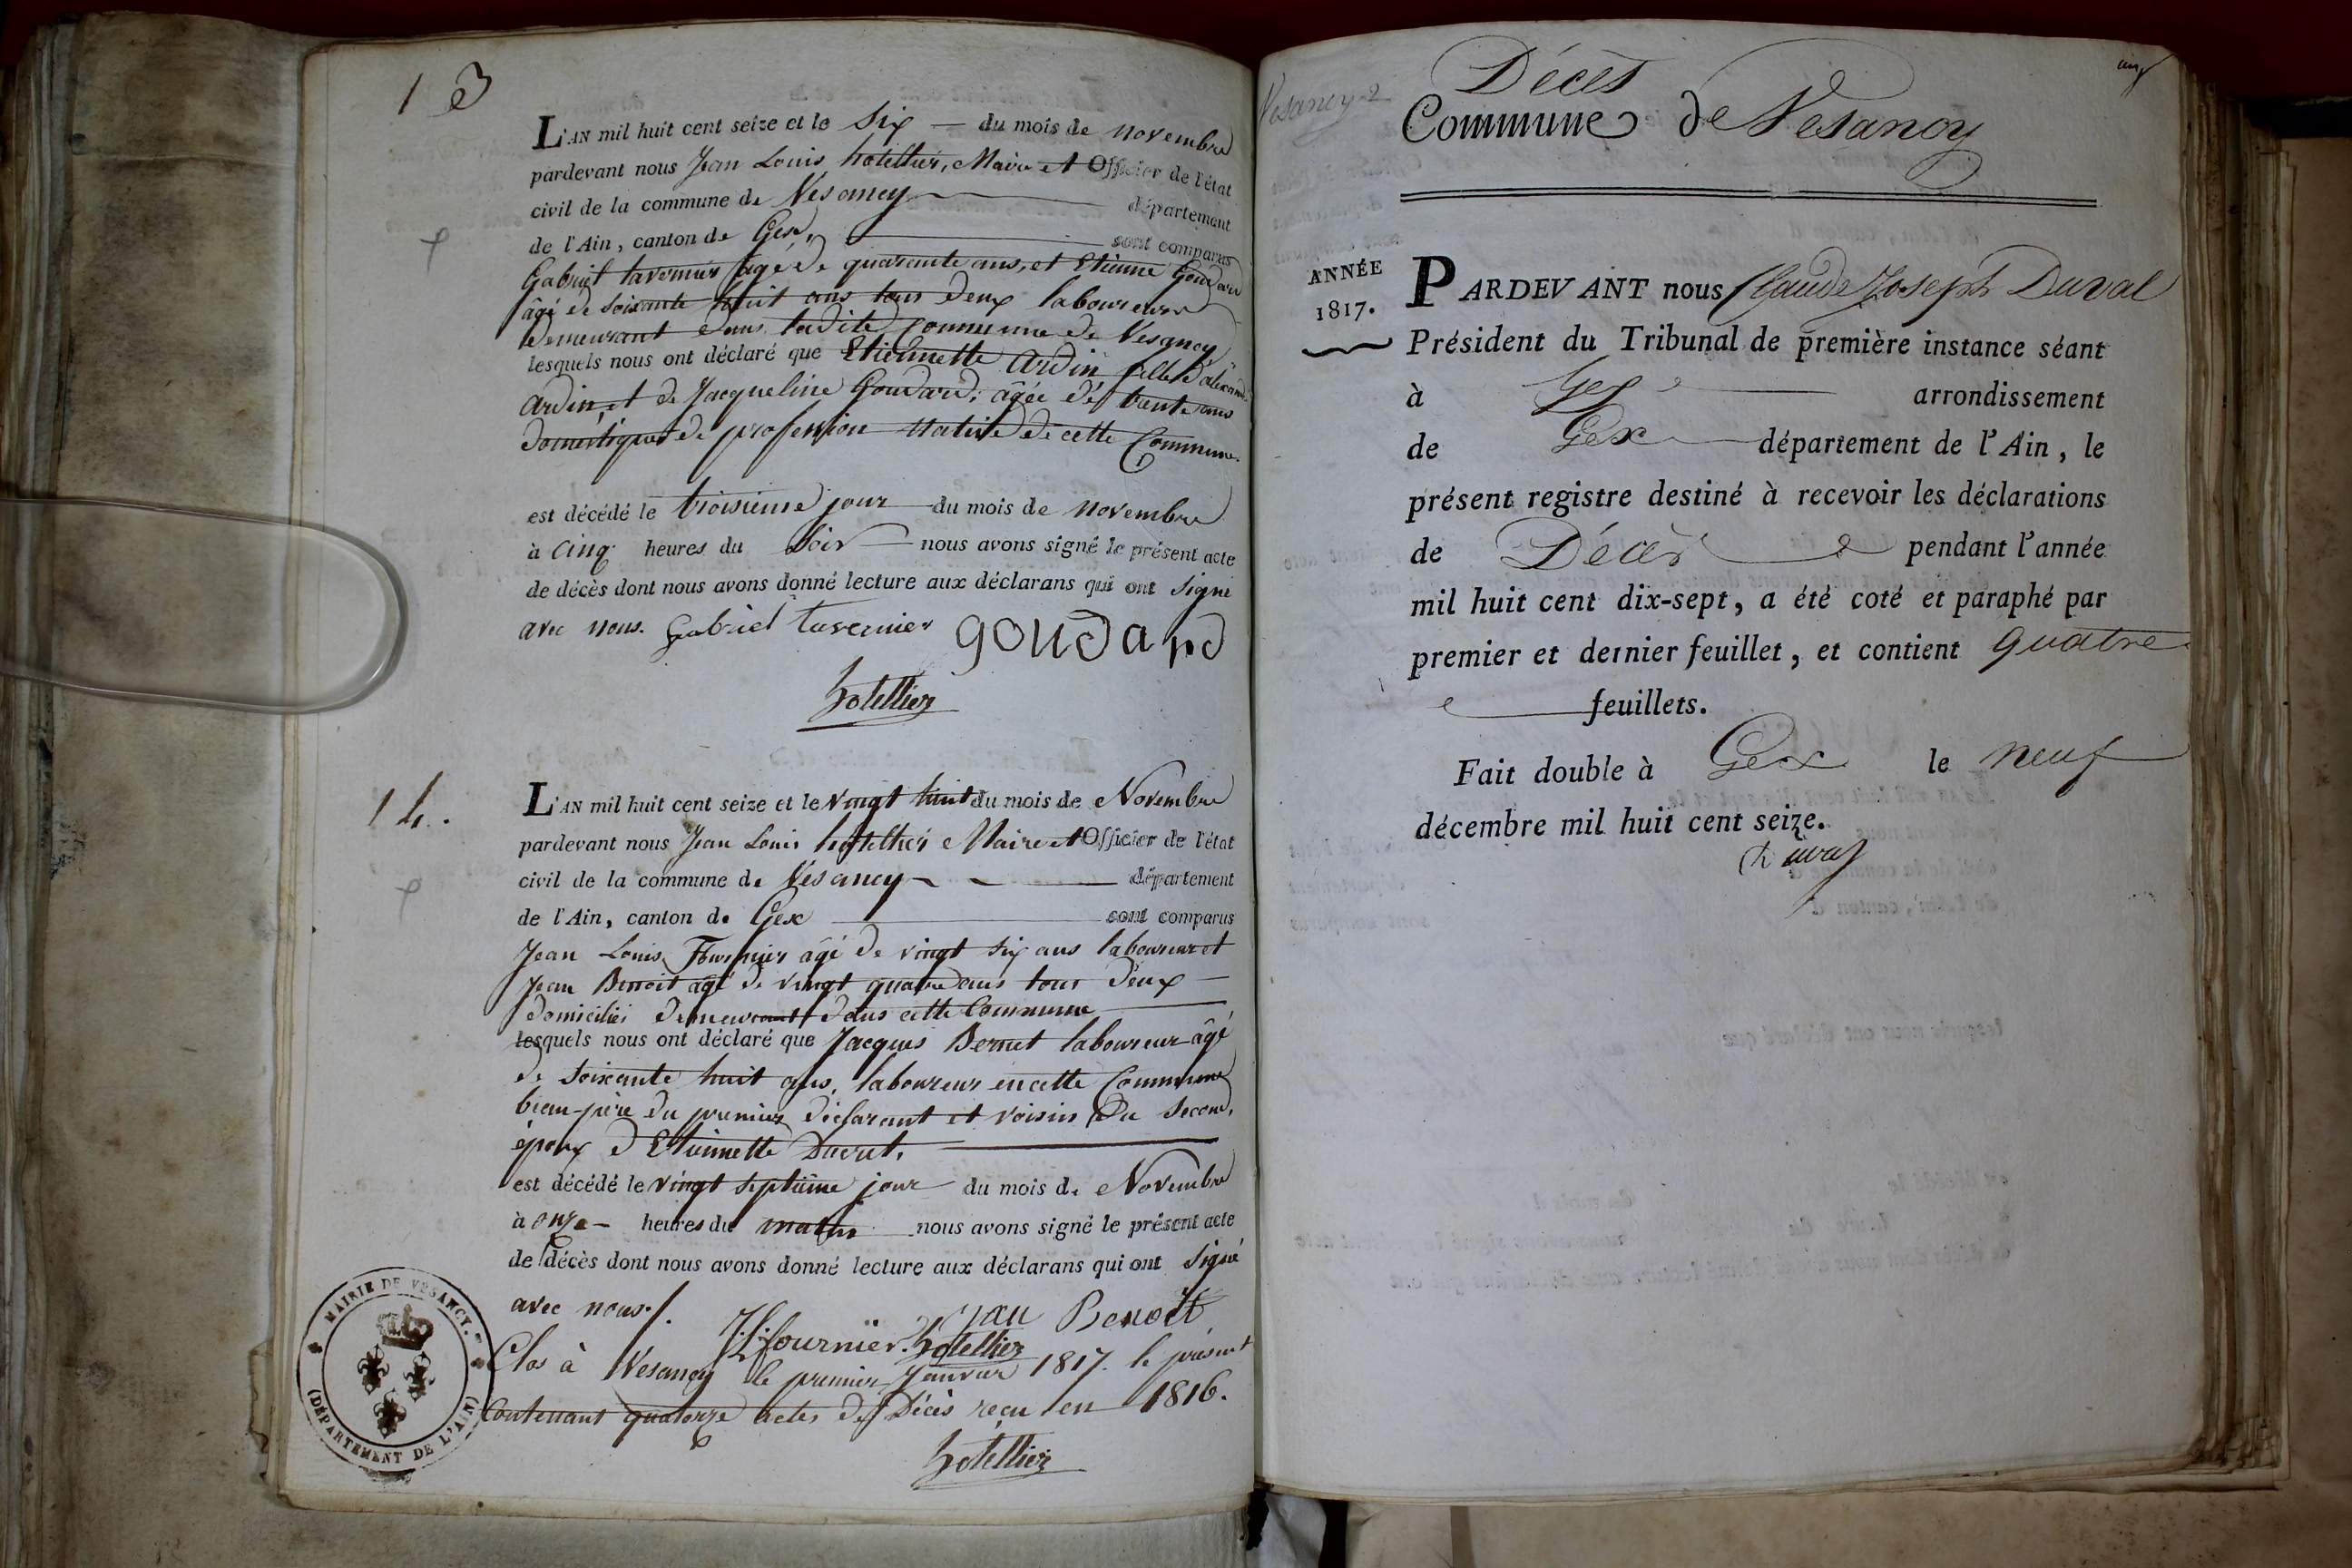 13
L'AN mil huit cent seize et le six du mois de novembre
pardevant nous Jean Louis hotellier, Maire et Officier de l'état
civil de la commune de Vésancy département
de l'Ain, canton de Gex, sont comparus
Gabriel tavernier âgé de quarante ans, et Etienne Goudard
âgé de soixante huit ans tous deux laboureurs
demeurant dans ladite Commune de Vesancy
lesquels nous ont déclaré que Etiennette Ardin fille d'
Ardin et de Jacqueline Goudard; âgée de trente ans
domestique de profession native de cette Commune.
est décédé le troisieme jour du mois de novembre
à cinq heures du soir nous avons signé le présent acte
de décès dont nous avons donné lecture aux déclarans qui ont signé
avec nous. Gabriel tavernier goudard
hotellier
14.
L'AN mil huit cent seize et le vingt huit du mois de Novembre
pardevant nous Jean Louis hotellier Maire et Officier de l'état
civil de la commune de Vésancy département
de l'Ain, canton de Gex sont comparus
Jean Louis Fournier âgé de vingt six ans laboureur et
Jean Benoit âgé de vingt quatre ans tous deux
domiciliés demeurant dans cette Commune
lesquels nous ont déclaré que Jacques Bernet laboureur âgé
de soixante huit ans, laboureur en cette Commune
beau-père du premier déclarant et voisin du second,
époux d'Etiennette Ducret.
est décédé le vingt septième jour du mois de Novembre
à onze heures du matin nous avons signé le présent acte
de décès dont nous avons donné lecture aux déclarans qui ont signé
avec nous./.
jan Benoît
J:L: fournier. hotellier
Clos à Vesancy le premier Janvier 1817. le présent
Contenant quatorze actes de Décès reçu en 1816.
hotellier
MAIRIE DE VESANCY.
(DÉPARTEMENT DE L'AIN)
Vesancy 2
Décès
Commune de Vesancy
ANNÉE
1817.
PARDEVANT nous Claude Joseph Duval
Président du Tribunal de première instance séant
à Gex arrondissement
de Gex département de l'Ain, le
présent registre destiné à recevoir les déclarations
de Décès pendant l'année
mil huit cent dix-sept, a été coté et paraphé par
premier et dernier feuillet, et contient quatre
feuillets.
Fait double à Gex le neuf
décembre mil huit cent seize.
Duval